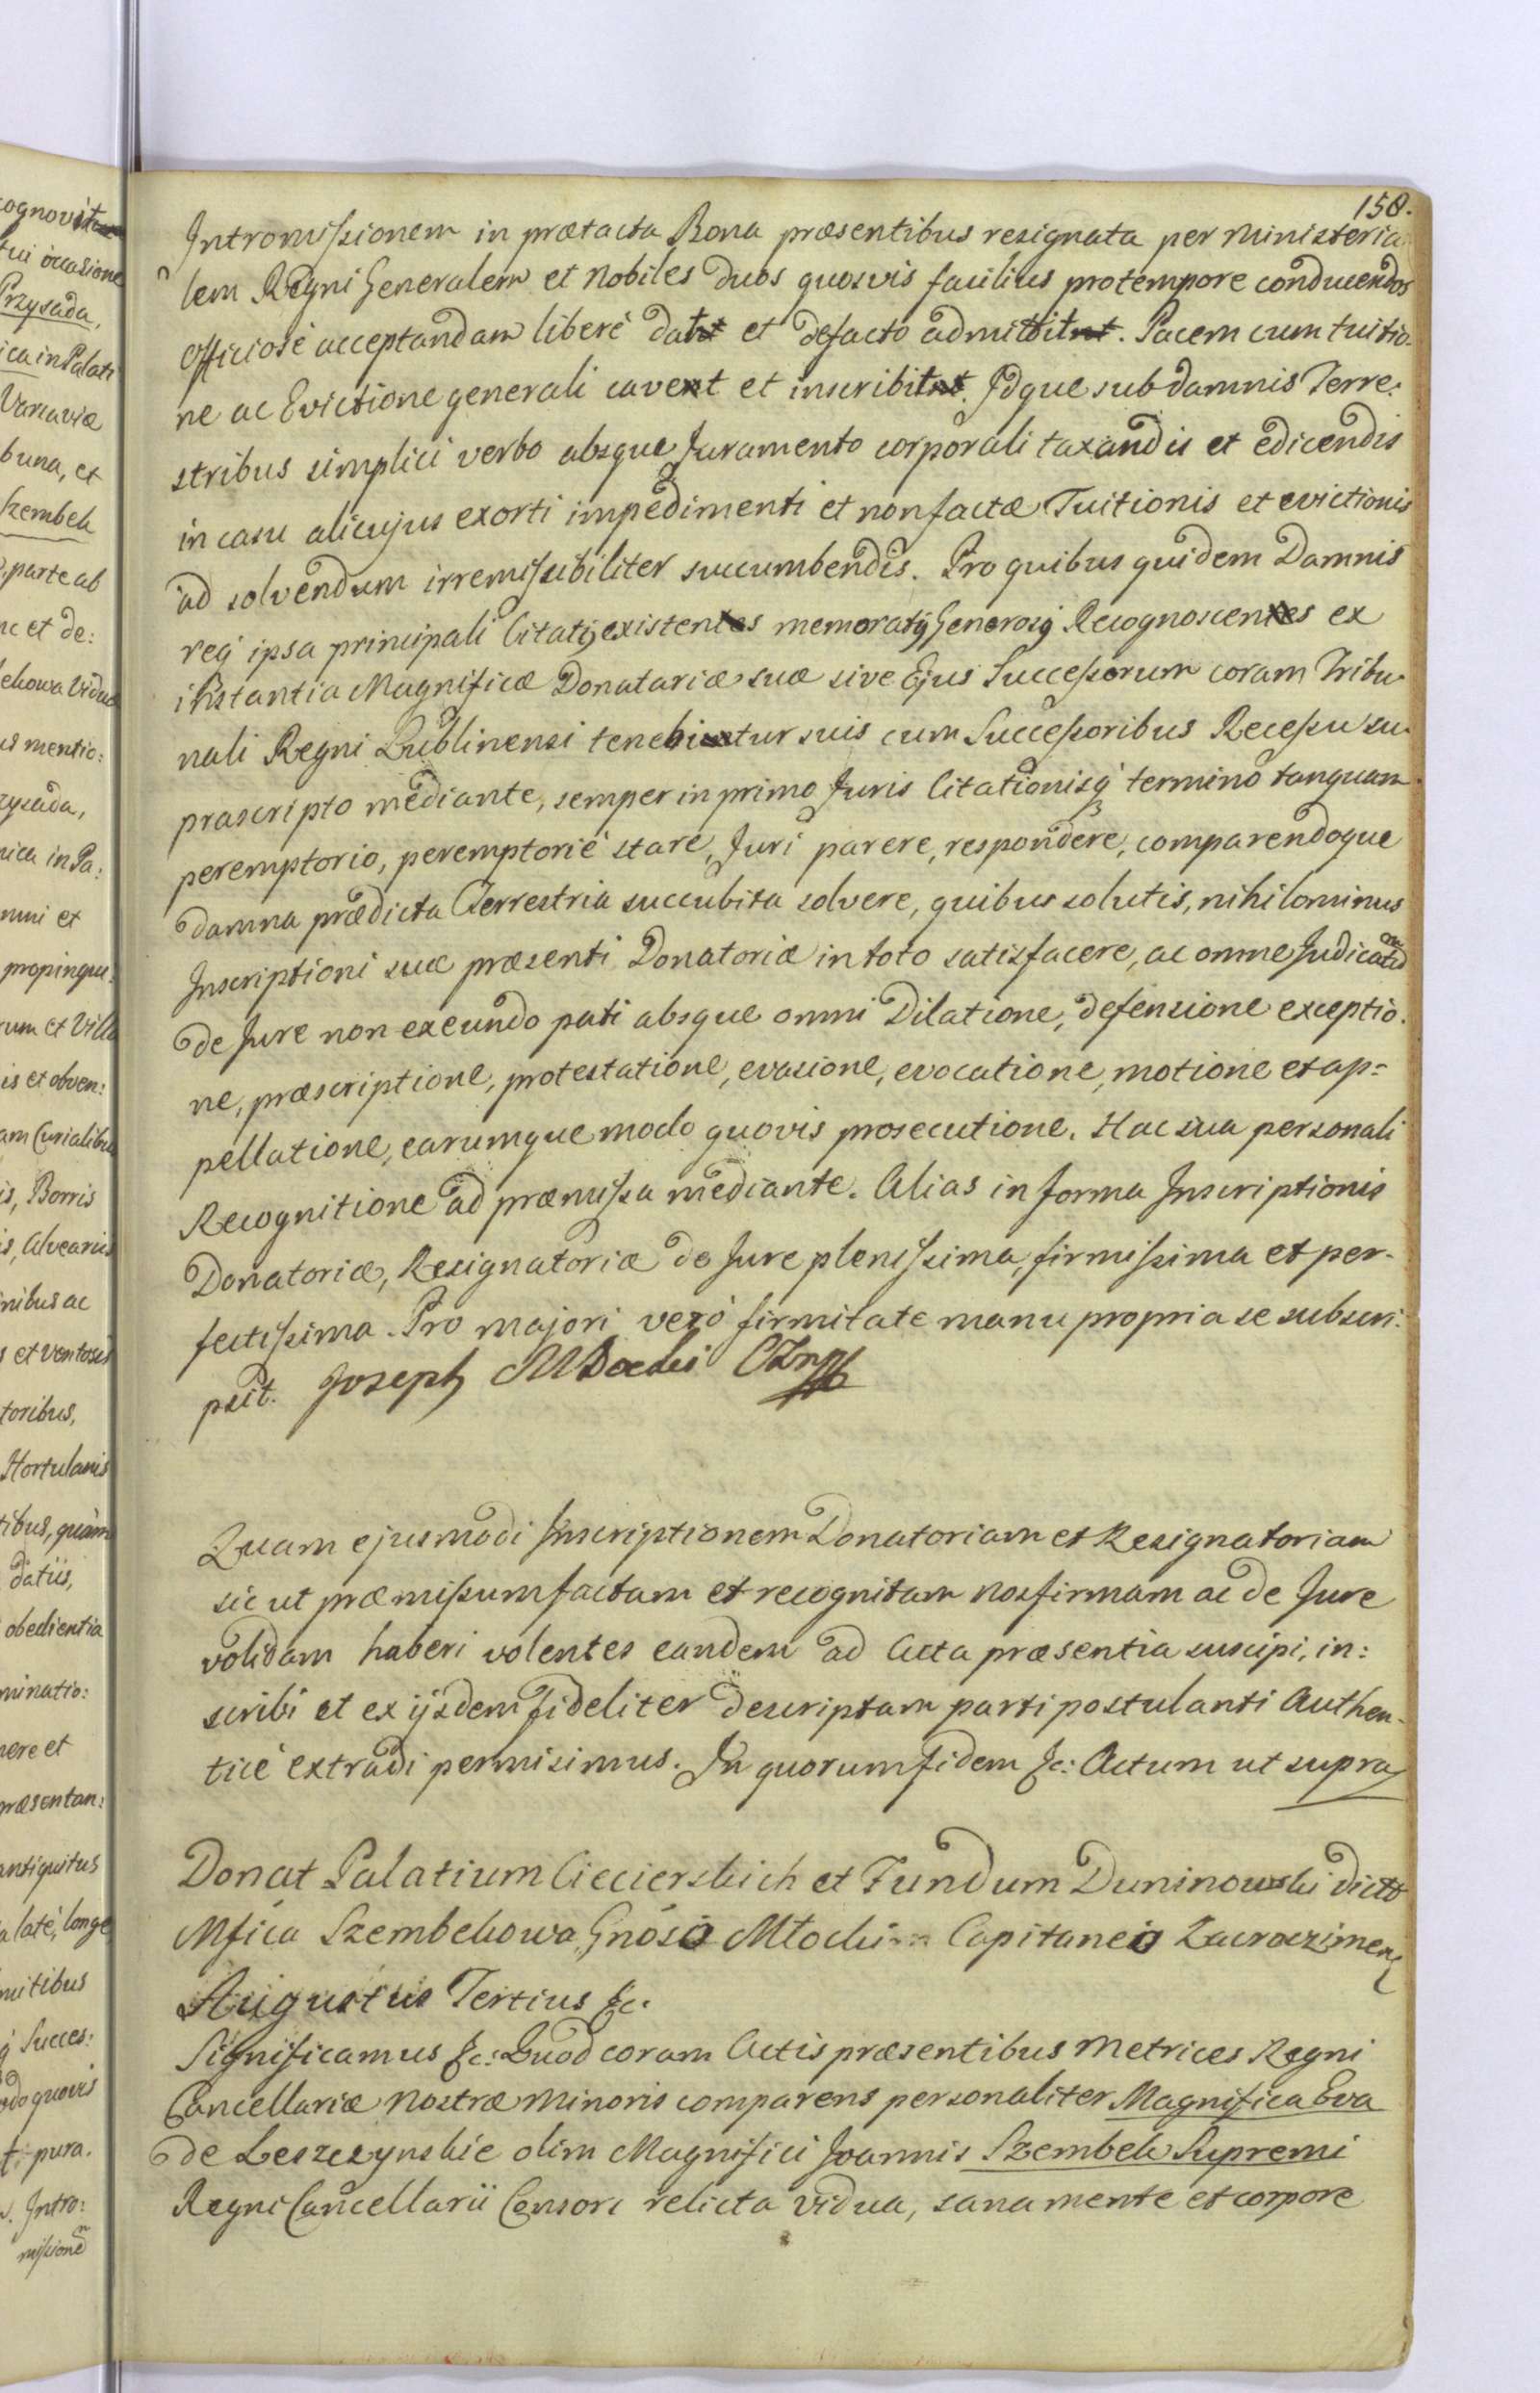 158.
Intromissionem in prætacta Bona præsentibus resignata per Ministeria
lem Regni Generalem et Nobiles duos quosvis facilius protempore conducendos
officiosè acceptandam liberè dat et defacto admittit. Pacem cum tuitio-
ne ac Evictione generali cavet et inscribit. Idque sub damnis Terre:
stribus simplici verbo absque Juramento corporali taxandis et edicendis
in casu alicujus exorti impedimenti et non factæ Tuitionis et evictionis
ad solvendum irremissibiliter succumbendis. Pro quibus quidem Damnis
reý ipsa principali Citatý existens memoratý Generosý Recognoscens ex
instantia Magnificæ Donatariæ suæ sive Ejus Successorum coram Tribu
nali Regni Lublinensi tenebitur suis cum Successoribus Recessu su-
prascripto mediante, semper in primo Juris Citationisq́ termino tanquam
peremptorio, peremptoriè stare, Juri parere, respondere, comparendoque
damna prædicta Terrestria succubita solvere, quibus solutis, nihilominus
Inscriptioni suæ præsenti Donatoriæ in toto satisfacere, ac omne Judicatũ
de Jure non exeundo pati absque omni Dilatione, defensione exceptio-
ne, præscriptione, protestatione, evasione, evocatione, motione et ap=
pellatione, earumque modo quovis prosecutione. Hac sua personali
Recognitione ad præmissa mediante. Alias in forma Inscriptionis
Donatoriæ, Resignatoriæ de Jure plenissima, firmissima et per-
fectissima. Pro majori verò firmitate manu propria se subscri:
psit. Joseph
Quam ejusmodi Inscriptionem Donatoriam et Resignatoriam
sic ut præmissum factam et recognitam nos firmam ac de Jure
validam haberi volentes eandem ad Acta præsentia suscipi, in:
scribi et ex ijsdem fideliter descriptam parti postulanti Authen-
ticè extradi permisimus. In quorum fidem &c: Actum ut supra
Donat Palatium Ciecierskich et Fundum Duninowski dictũ
Mfica Szembekowa Gnoso Młocki Capitaneo Zacroczimen
Augustus Tertius &c.
Significamus &c: Quod coram Actis præsentibus Metrices Regni
Cancellariæ Nostræ Minoris comparens personaliter Magnifica Eva
de Leszczynskie olim Magnifici Joannis Szembek Supremi
Regni Cancellarii Consors relicta vidua, sana mente et corpore